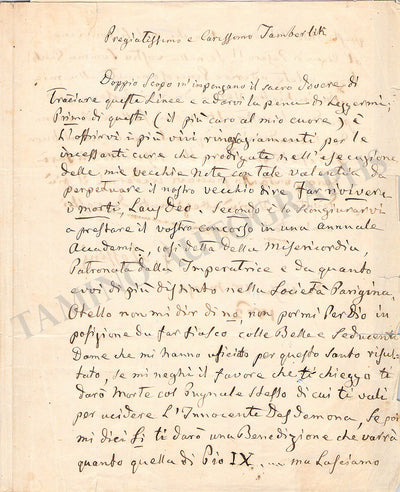 Pregiatissimo e Carissimo Tamberlik
Doppio Scopo m'impongano il sacro dovere di
Tracciare queste Linee e a darvi la pena di Leggermi;
Primo di questi (il più caro al mio cuore) è
L'offrirvi i più vivi ringraziamenti per le
incessanti cure che prodigate nell'esecuzione
delle mie vecchie note con tale valentia
perpetuare il nostro vecchio dire far rivivere
i morti, Laus Deo. Secondo è lo scongiurarvi
a prestare il vostro concorso in una annuale
Accademia, così detta della Misericordia,
Patronata dalla Imperatrice e da quanto
evvi di più distinto nella Società Parigina,
Otello non mi dir di no, non pormi Per Dio in
posizione du far fiasco colle Belle e Seducenti
Dame che mi hanno uficiato per questo Santo risul-
tato, se mi neghi il favore che ti chieggo ti
darò Morte col Pugnale stesso di cui ti vali
per uccidere L'Innocente Desdemona, Se poi
mi dici Si ti darò una Benedizione che varrà
quanto quella di Pio IX, ... ma Lasciamo
TAMINO AUTOGRAPHS